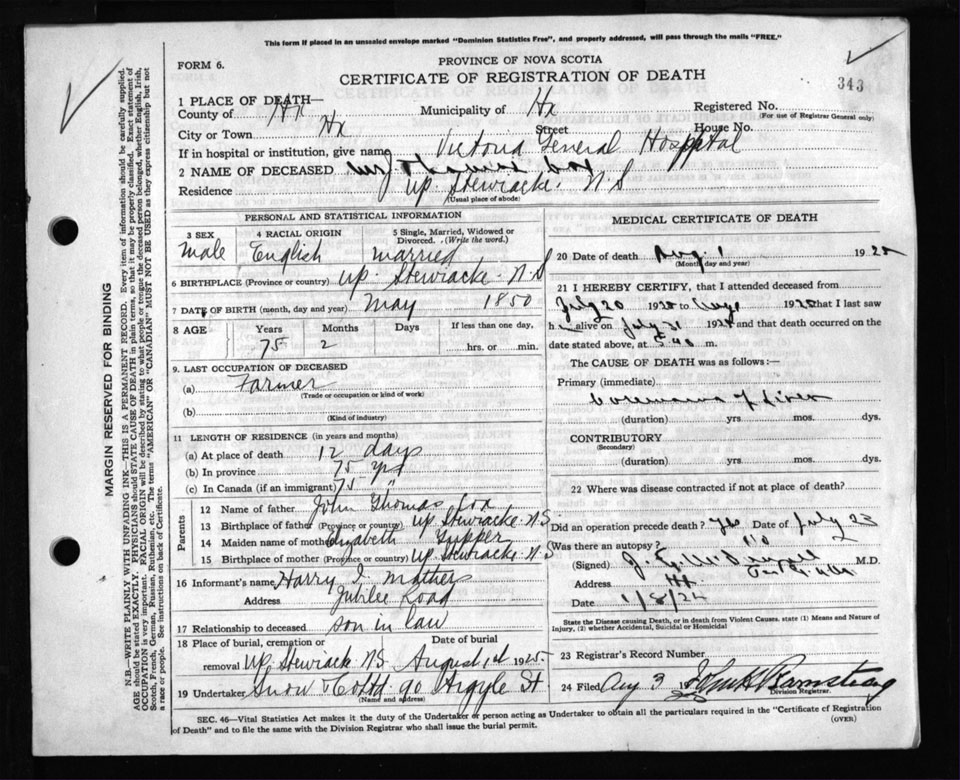 This form if placed in an unsealed envelope marked "Dominion Statistics Free", and properly addressed, will pass through the mails "FREE."
FORM 6.
PROVINCE OF NOVA SCOTIA
CERTIFICATE OF REGISTRATION OF DEATH
343
1 PLACE OF DEATH—
County of Hx Municipality of Hx Registered No.
(For use of Registrar General only)
City or Town Hx Street House No.
If in hospital or institution, give name Victoria General Hospital
2 NAME OF DECEASED Cox
Residence Up. Stewiacke. N.S
(Usual place of abode)
PERSONAL AND STATISTICAL INFORMATION
3 SEX 4 RACIAL ORIGIN 5 Single, Married, Widowed or Divorced. (Write the word.)
Male English Married
6 BIRTHPLACE (Province or country) Up. Stewiacke. N.S
7 DATE OF BIRTH (month, day and year) May 1850
8 AGE Years Months Days If less than one day,
75 2 hrs. or min.
9. LAST OCCUPATION OF DECEASED
(a) Farmer
(Trade or occupation or kind of work)
(b)
(Kind of industry)
11 LENGTH OF RESIDENCE (in years and months)
(a) At place of death 12 days
(b) In province 75 yrs
(c) In Canada (if an immigrant) 75 "
Parents
12 Name of father John Thomas Cox
13 Birthplace of father (Province or country) Up. Stewiacke. N.S
14 Maiden name of mother Elizabeth Tupper
15 Birthplace of mother (Province or country) Up. Stewiacke N.S
16 Informant's name Harry I. Mathers
Address Jubilee Road
17 Relationship to deceased son in law
18 Place of burial, cremation or removal Date of burial
Up. Stewiack N.S August 1st 1925
19 Undertaker Snow & Co Ltd 90 Argyle St
(Name and address)
MEDICAL CERTIFICATE OF DEATH
20 Date of death Aug. 1 1925
(Month, day and year)
21 I HEREBY CERTIFY, that I attended deceased from
July 20 1925 to Aug 1925 that I last saw
h alive on July 31 192 and that death occurred on the
date stated above, at 5.40 m.
The CAUSE OF DEATH was as follows:—
Primary (immediate)
Carcinoma of Liver
(duration) yrs. mos. dys.
CONTRIBUTORY
(Secondary)
(duration) yrs. mos. dys.
22 Where was disease contracted if not at place of death?
Did an operation precede death? Yes Date of July 23
Was there an autopsy? no
(Signed) J. G. M.D.
Address Hx.
Date 1/8/25
State the Disease causing Death, or in death from Violent Causes. state (1) Means and Nature of Injury, (2) whether Accidental, Suicidal or Homicidal
23 Registrar's Record Number
24 Filed Aug 3 19
Division Registrar.
SEC. 46—Vital Statistics Act makes it the duty of the Undertaker or person acting as Undertaker to obtain all the particulars required in the "Certificate of Registration
of Death" and to file the same with the Division Registrar who shall issue the burial permit. (OVER)
MARGIN RESERVED FOR BINDING
N.B.—WRITE PLAINLY WITH UNFADING INK—THIS IS A PERMANENT RECORD. Every item of information should be carefully supplied.
AGE should be stated EXACTLY. PHYSICIANS should STATE CAUSE OF DEATH in plain terms, so that it may be properly classified. Exact statement of
OCCUPATION is very important. RACIAL ORIGIN will be described by stating to what people or tongue the deceased person belonged, whether English, Irish,
Scotch, French, German, Russian, Ruthenian, etc. The terms "AMERICAN" OR "CANADIAN" MUST NOT BE USED as they express citizenship but not
a race or people. See instructions on back of Certificate.